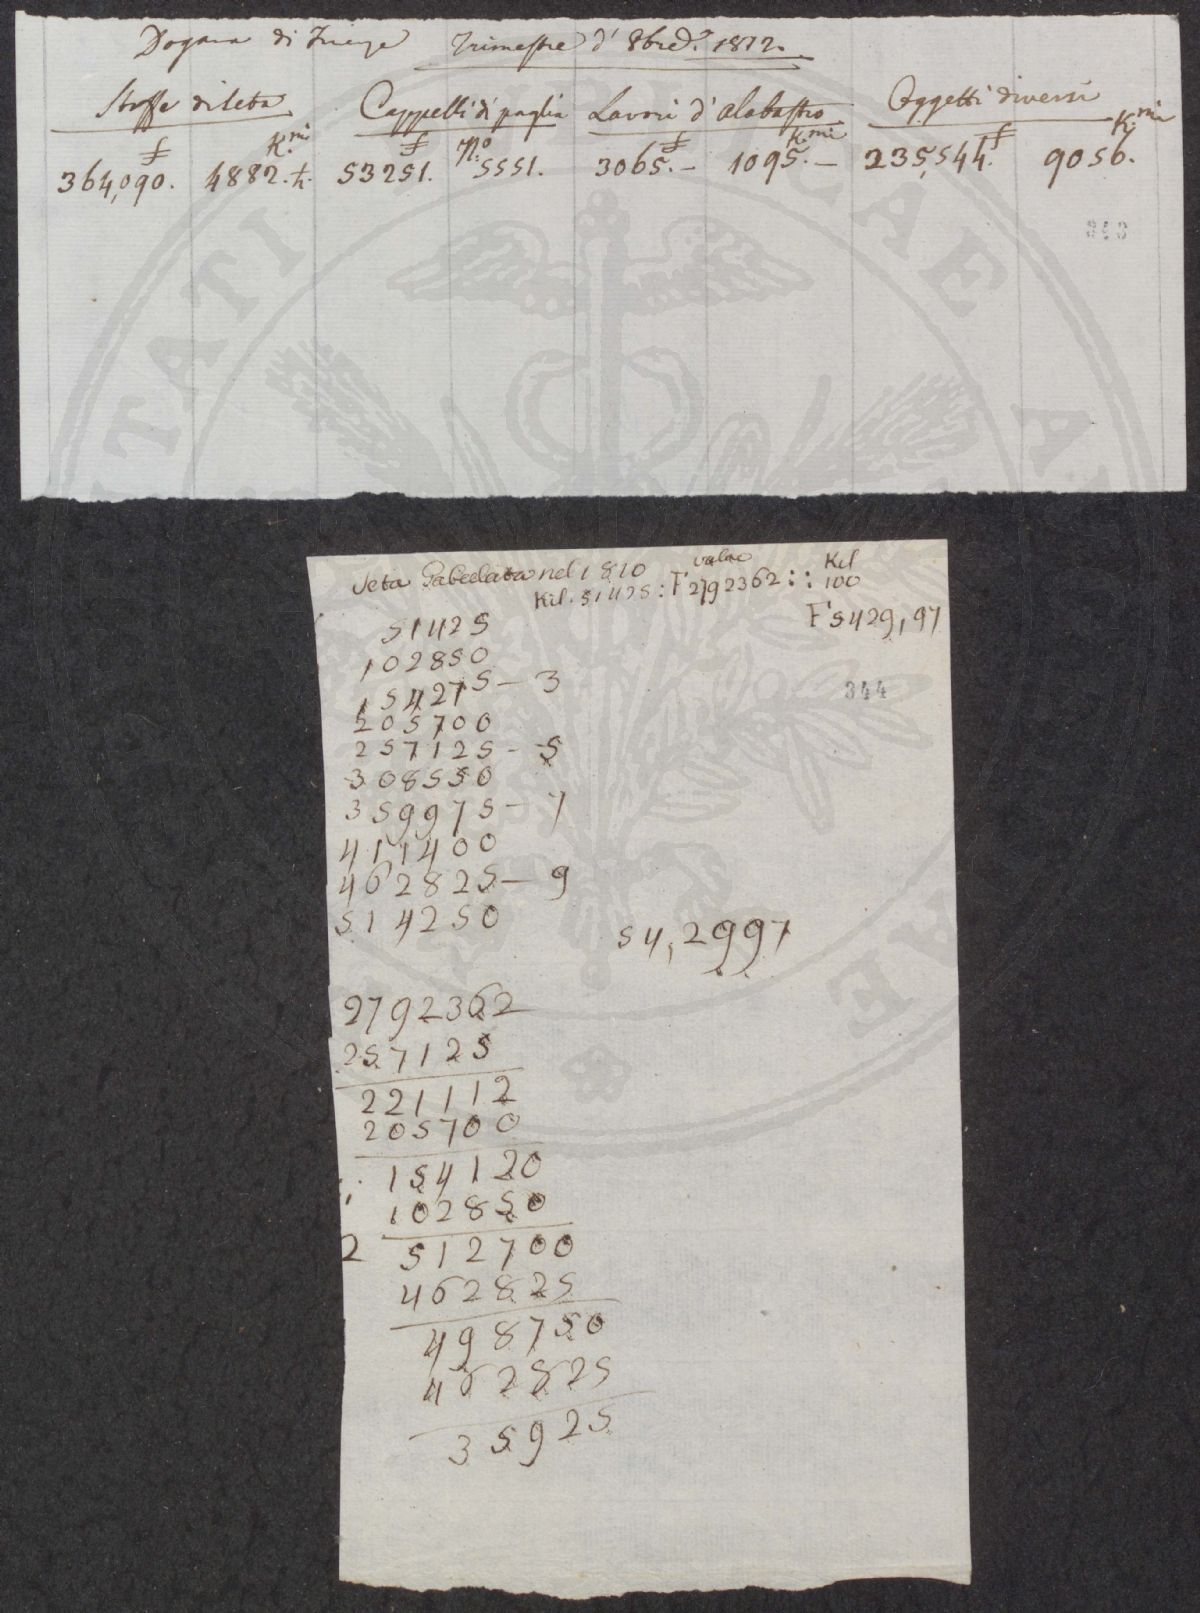 Dogana di Firenze Trimestre d' 8bre d.º 1812.
Stoffe di seta Cappelli di paglia Lavori d'alabastro Oggetti diversi
f K.mi f Nº f K.mi f K.mi
364,090. 4882.½. 53251. 5551. 3065.- 1095.- 235,544. 9056.
343
Seta Gabellata nel 1810 valore Kil
Kil. 51425 : F 2792362 :: 100
F 5429,97
51425
102850
154275 - 3
344
205700
257125 - 5
308550
359975 - 7
411400
462825 - 9
514250
54,2997
2792362
257125
221112
205700
154120
102850
2 512700
462825
498750
462825
35925